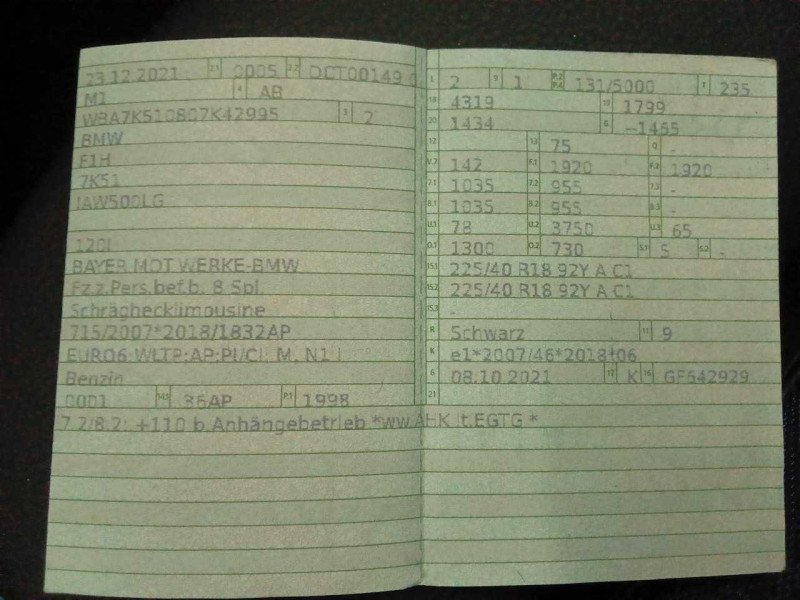 23.12.2021 2.1 0005 2.2 DCT00149 0
M1 4 AB
WBA7K510807K42995 3 2
BMW
F1H
7K51
IAW500LG
120I
BAYER.MOT.WERKE-BMW
Fz.z.Pers.bef.b. 8 Spl.
Schrägheckllmousine
715/2007*2018/1832AP
EURO6 WLTP;AP;PI/CI, M, N1 I
Benzin
0001 14.1 36AP P.1 1998
7.2/8.2: +110 b.Anhängebetrieb *ww.AHK lt.EGTG *
L 2 9 1 P.2 P.4 131/5000 T 235
18 4319 19 1799
20 1434 G -1465
12 13 75 Q -
V.7 142 F.1 1920 F.2 1920
7.1 1035 7.2 955 7.3 -
8.1 1035 8.2 955 8.3 -
U.1 78 U.2 3750 U.3 65
O.1 1300 O.2 730 S.1 5 S.2 -
15.1 225/40 R18 92Y A C1
15.2 225/40 R18 92Y A C1
15.3 -
R Schwarz 11 9
K e1*2007/46*2018*06
6 08.10.2021 17 K 16 GF642929
21